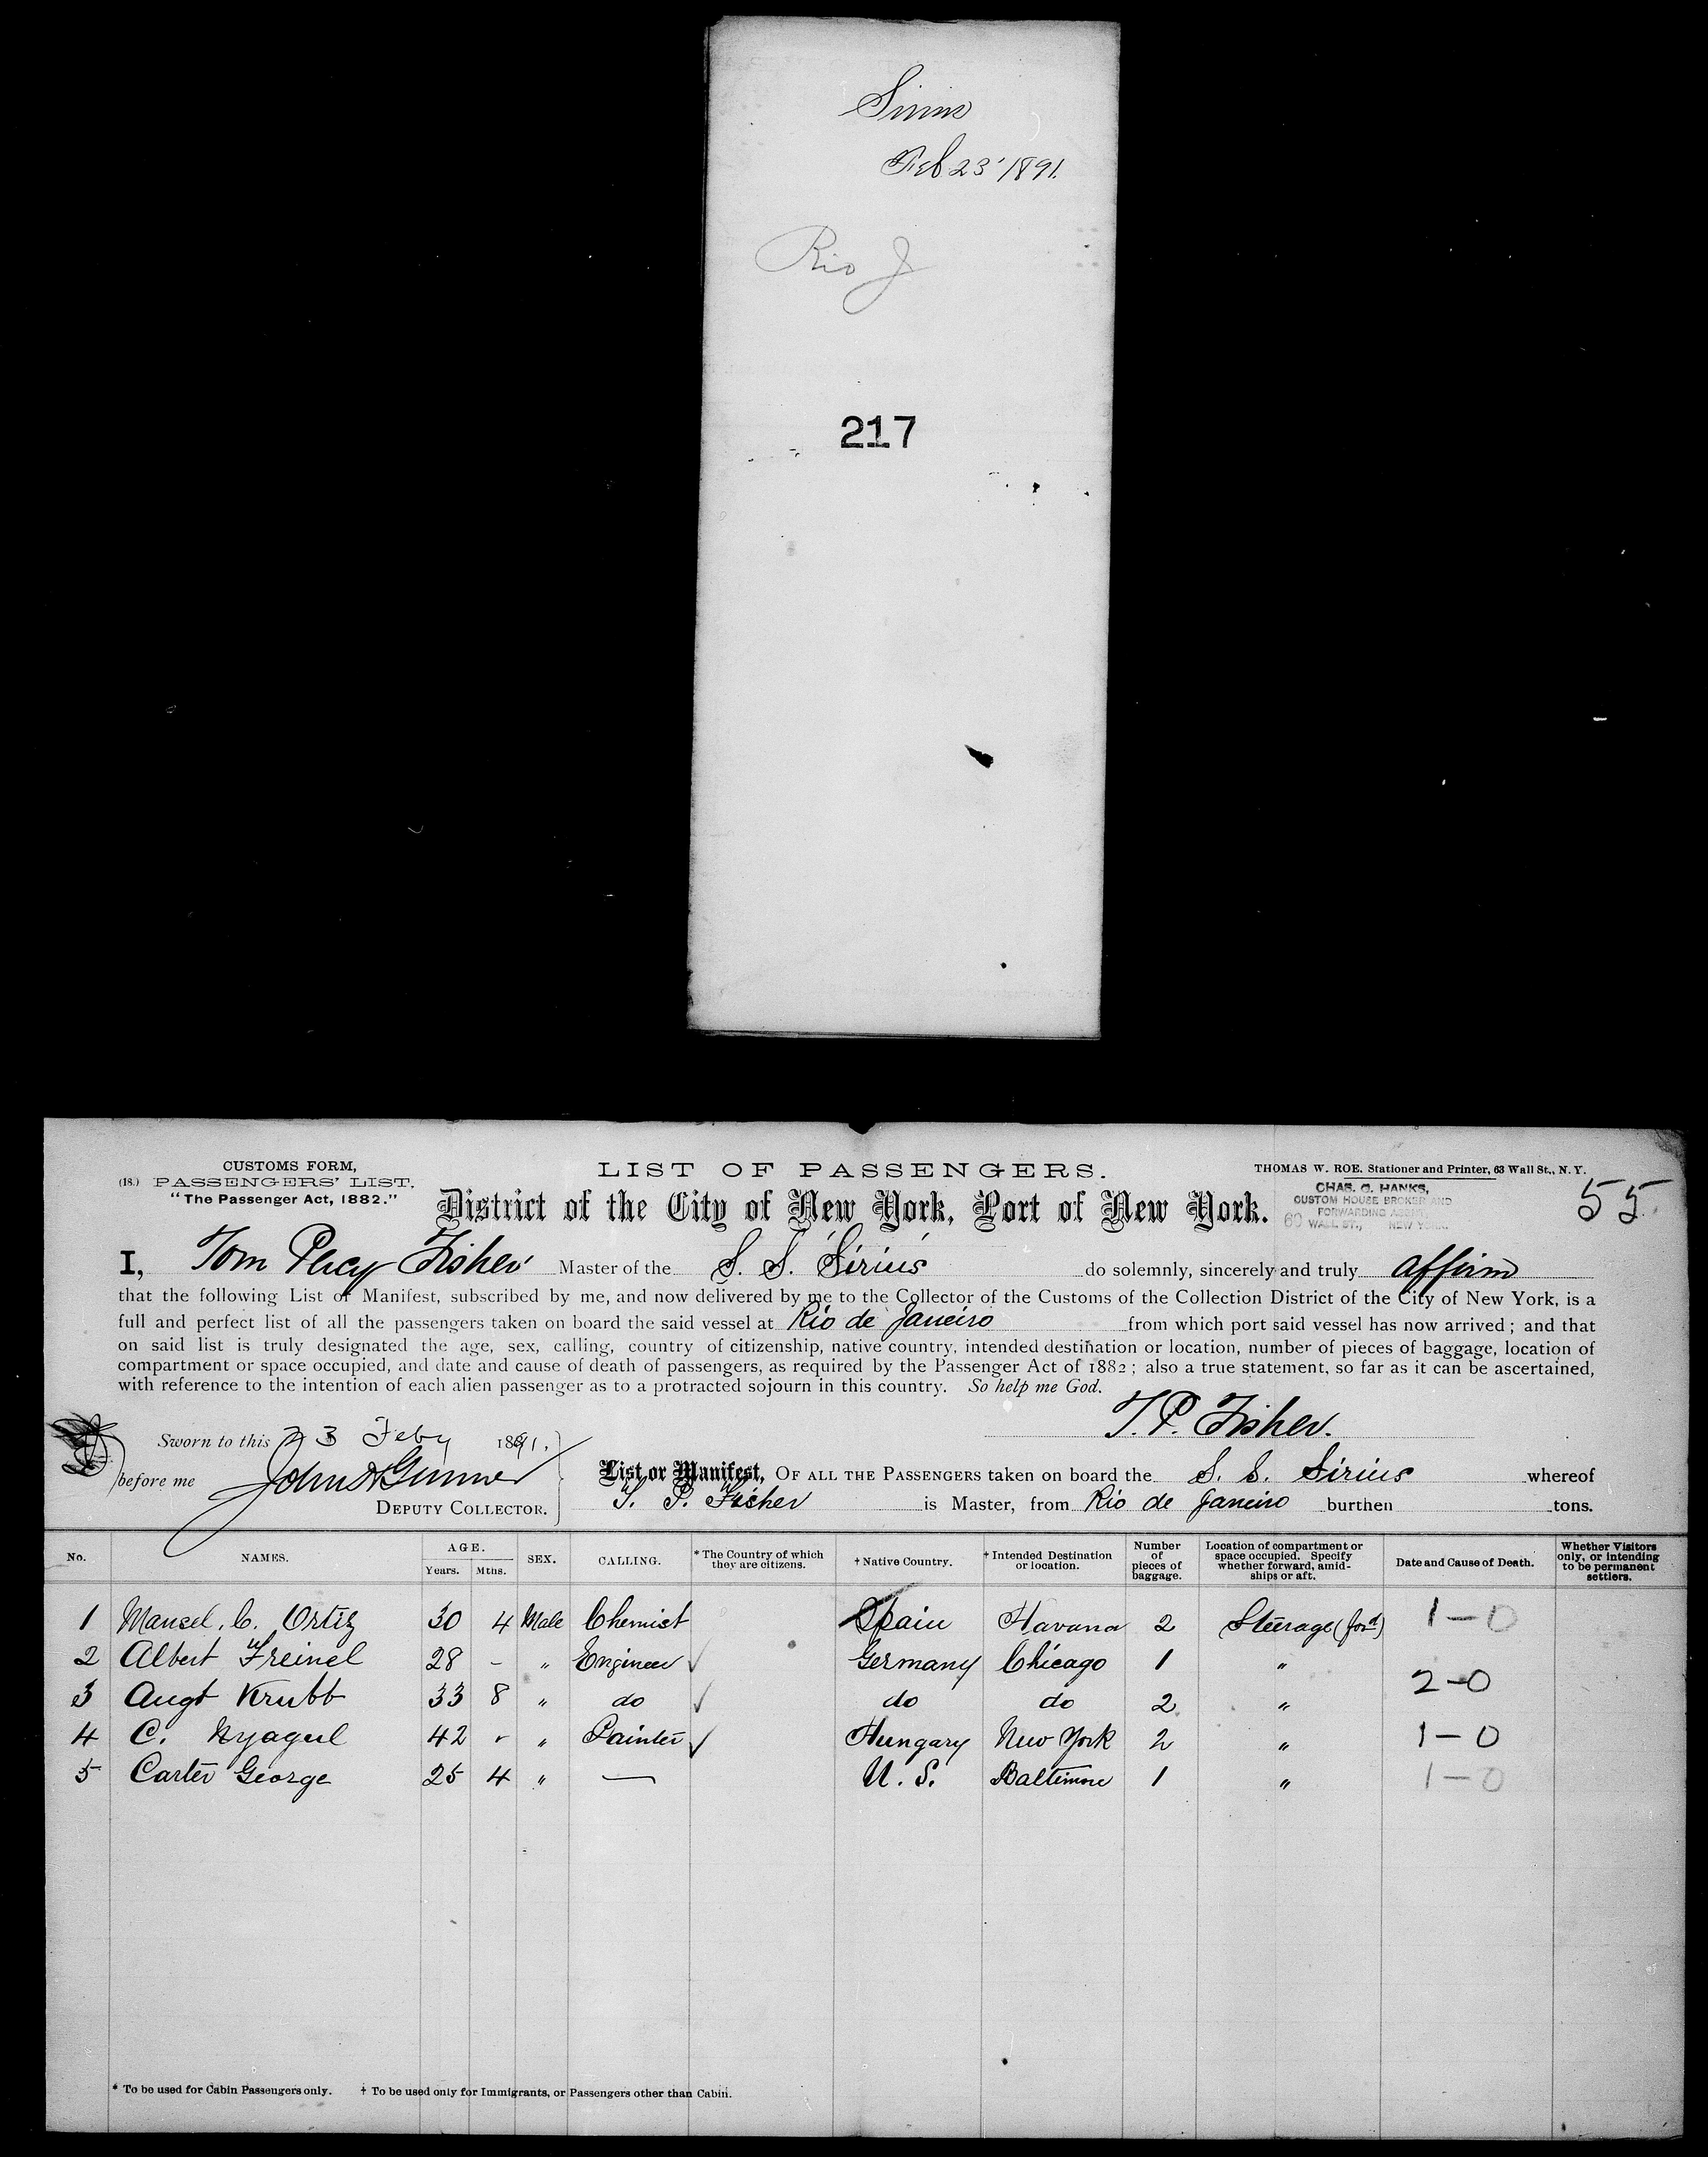 Sirius
Feb 23' 1891.
Rio J
217
CUSTOMS FORM,
(18.) PASSENGERS' LIST,
"The Passenger Act, 1882."
LIST OF PASSENGERS.
THOMAS W. ROE. Stationer and Printer, 63 Wall St., N. Y.
District of the City of New York, Port of New York.
CHAS. G. HANKS,
CUSTOM HOUSE BROKER AND
FORWARDING AGENT,
60 WALL ST., NEW YORK.
55
I, Tom Percy Fisher Master of the S. S. Sirius do solemnly, sincerely and truly affirm
that the following List or Manifest, subscribed by me, and now delivered by me to the Collector of the Customs of the Collection District of the City of New York, is a
full and perfect list of all the passengers taken on board the said vessel at Rio de Janeiro from which port said vessel has now arrived; and that
on said list is truly designated the age, sex, calling, country of citizenship, native country, intended destination or location, number of pieces of baggage, location of
compartment or space occupied, and date and cause of death of passengers, as required by the Passenger Act of 1882; also a true statement, so far as it can be ascertained,
with reference to the intention of each alien passenger as to a protracted sojourn in this country. So help me God.
T. P. Fisher.
Sworn to this 23 Feby 1891.
before me John
DEPUTY COLLECTOR.
List or Manifest, OF ALL THE PASSENGERS taken on board the S. S. Sirius whereof
T. P. Fisher is Master, from Rio de Janeiro burthen tons.
No. NAMES. AGE. Years. Mths. SEX. CALLING. * The Country of which they are citizens. † Native Country. † Intended Destination or location. Number of pieces of baggage. Location of compartment or space occupied. Specify whether forward, amidships or aft. Date and Cause of Death. Whether Visitors only, or intending to be permanent settlers.
1 Manuel. C. Ortiz 30 4 Male Chemist Spain Havana 2 Steerage (ford) 1-0
2 Albert Freinel 28 - " Engineer ✓ Germany Chicago 1 "
3 Augt Krubb 33 8 " do ✓ do do 2 " 2-0
4 C. Nyagul 42 - " Painter ✓ Hungary New York 2 " 1-0
5 Carter George 25 4 " — U. S. Baltimore 1 " 1-0
* To be used for Cabin Passengers only. † To be used only for Immigrants, or Passengers other than Cabin.